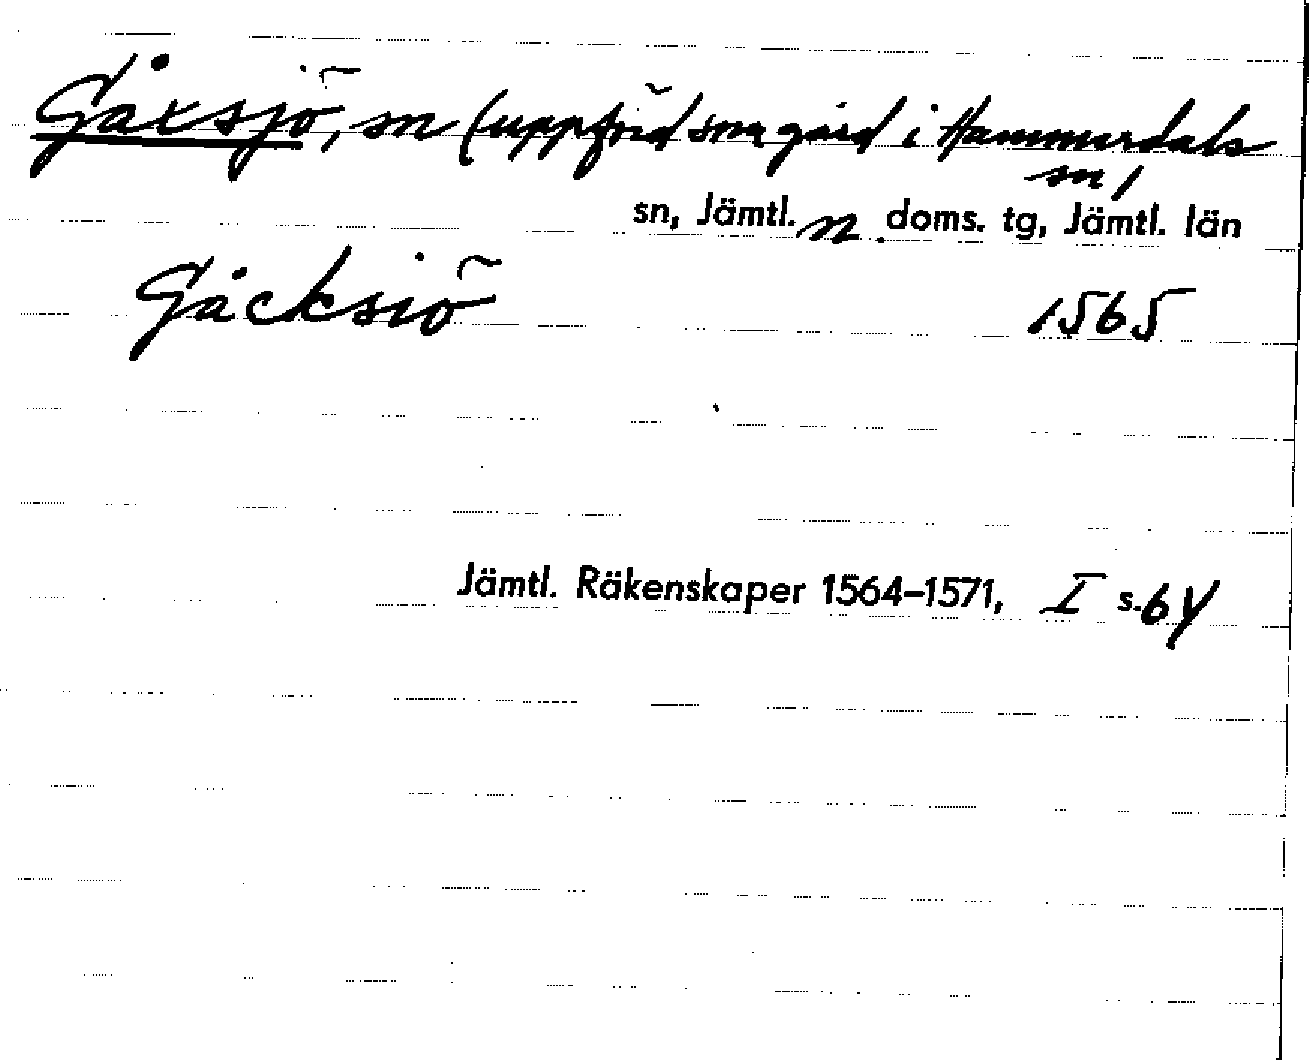 Gåxsjö, sn (uppförd som gård i Hammerdals
sn)
sn, Jämtl. n doms. tg, Jämtl. län
Gåcksiö 1565
Jämtl. Räkenskaper 1564–1571, I s. 64